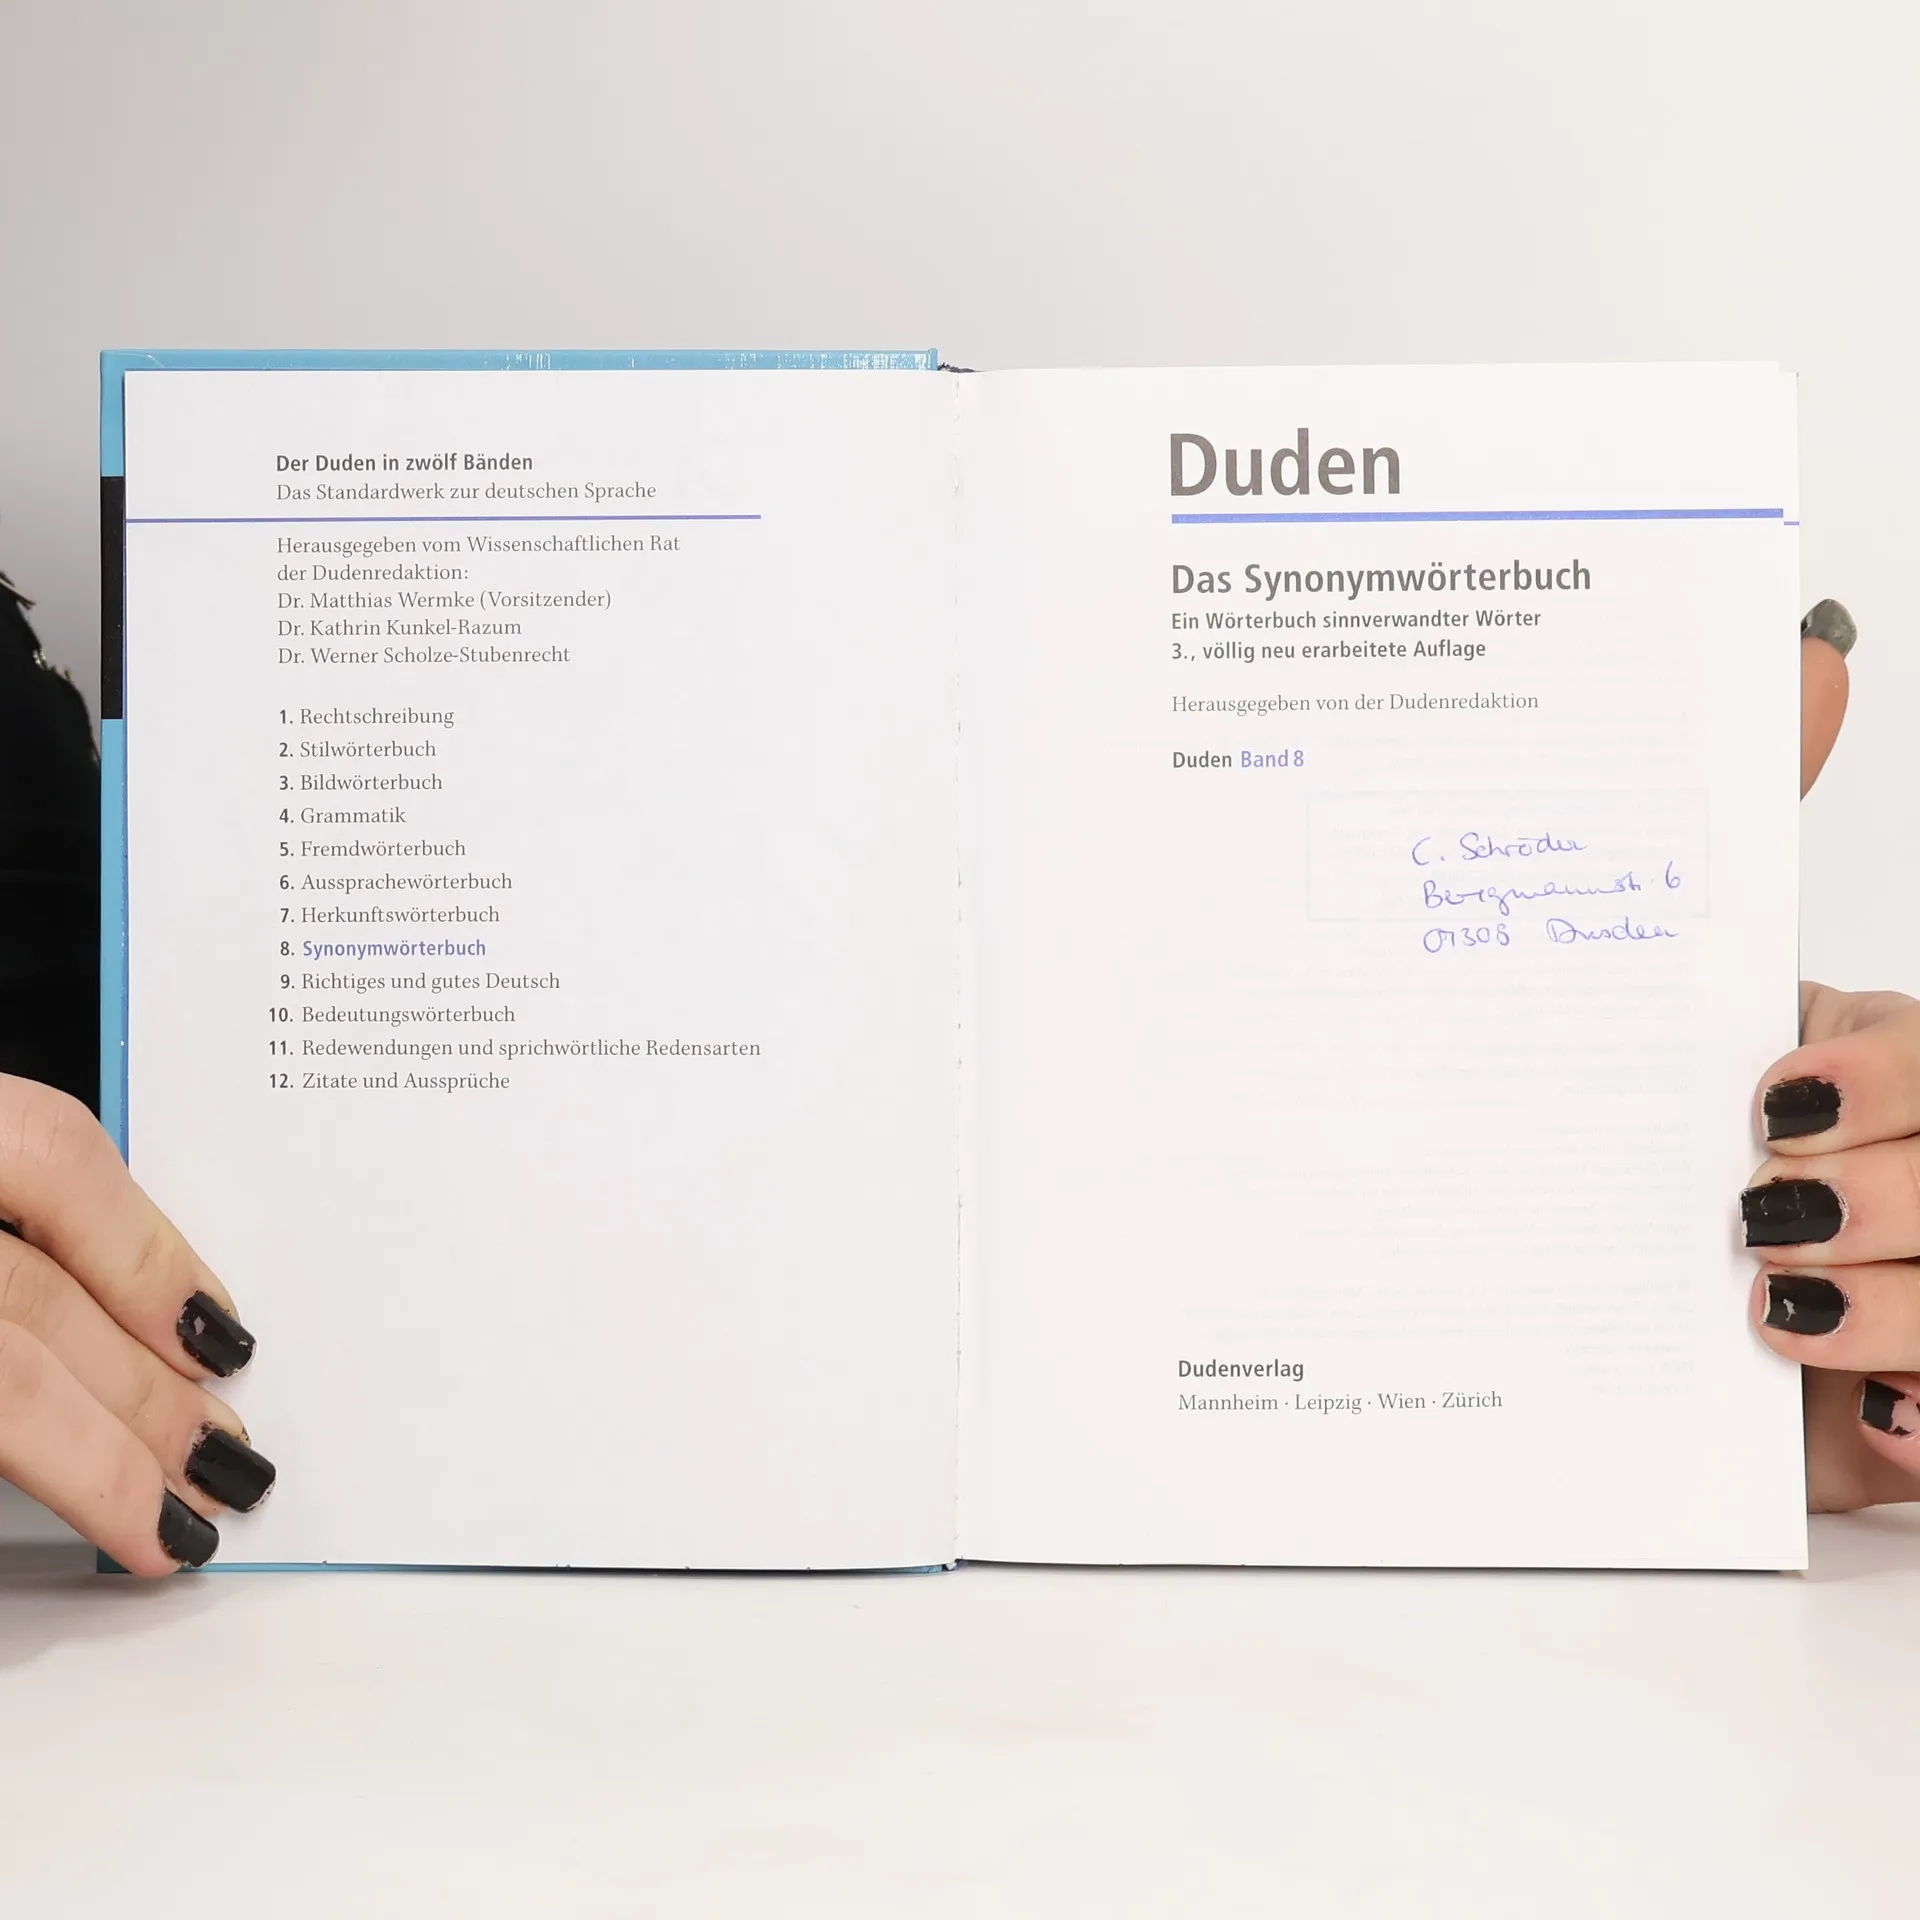 Der Duden in zwölf Bänden
Das Standardwerk zur deutschen Sprache
Herausgegeben vom Wissenschaftlichen Rat
der Dudenredaktion:
Dr. Matthias Wermke (Vorsitzender)
Dr. Kathrin Kunkel-Razum
Dr. Werner Scholze-Stubenrecht
1. Rechtschreibung
2. Stilwörterbuch
3. Bildwörterbuch
4. Grammatik
5. Fremdwörterbuch
6. Aussprachewörterbuch
7. Herkunftswörterbuch
8. Synonymwörterbuch
9. Richtiges und gutes Deutsch
10. Bedeutungswörterbuch
11. Redewendungen und sprichwörtliche Redensarten
12. Zitate und Aussprüche
Duden
Das Synonymwörterbuch
Ein Wörterbuch sinnverwandter Wörter
3., völlig neu erarbeitete Auflage
Herausgegeben von der Dudenredaktion
Duden Band 8
C. Schröder
Bergmannstr. 6
01308 Dresden
Dudenverlag
Mannheim · Leipzig · Wien · Zürich